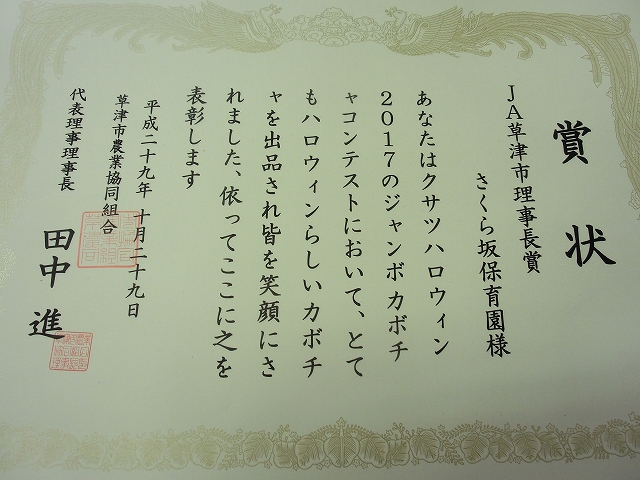 賞状
JA草津市理事長賞
さくら坂保育園様
あなたはクサツハロウィン
2017のジャンボカボチ
ャコンテストにおいて、とて
もハロウィンらしいカボチ
ャを出品され皆を笑顔にさ
れました、依ってここに之を
表彰します
平成二十九年 十月二十九日
草津市農業協同組合
代表理事理事長
田中 進